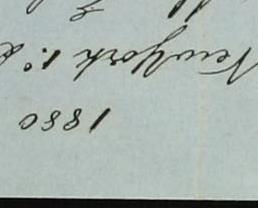 New York 1º d
1880